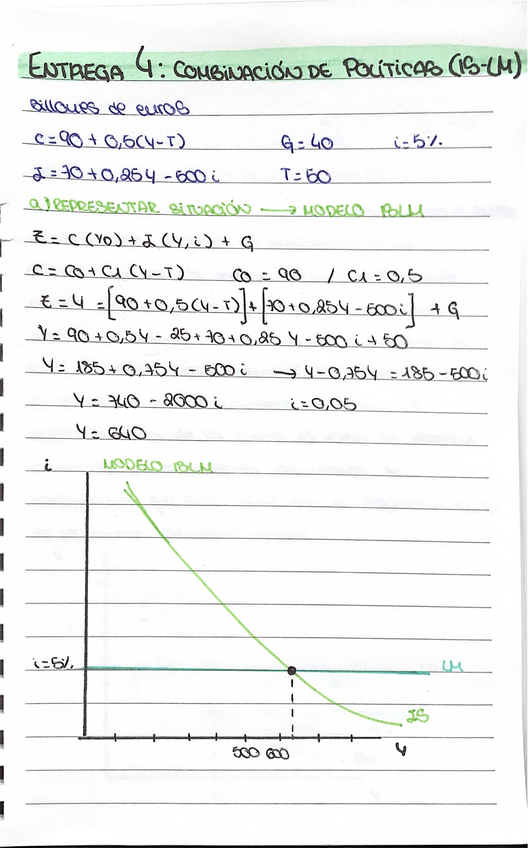 ENTREGA 4: COMBINACIÓN DE POLÍTICAS (IS-LM)
Billones de euros
C=90+0,5(Y-T) G=40 i=5%
I=70+0,25Y-500i T=50
a) REPRESENTAR SITUACIÓN → MODELO ISLM
Z=C(YD)+I(Y,i)+G
C=C0+C1(Y-T) C0=90 / C1=0,5
Z=Y=[90+0,5(Y-T)]+[70+0,25Y-500i]+G
Y=90+0,5Y-25+70+0,25Y-500i+50
Y=185+0,75Y-500i → Y-0,75Y=185-500i
Y=740-2000i i=0,05
Y=640
i MODELO ISLM
i=5% LM
IS
500 600 Y